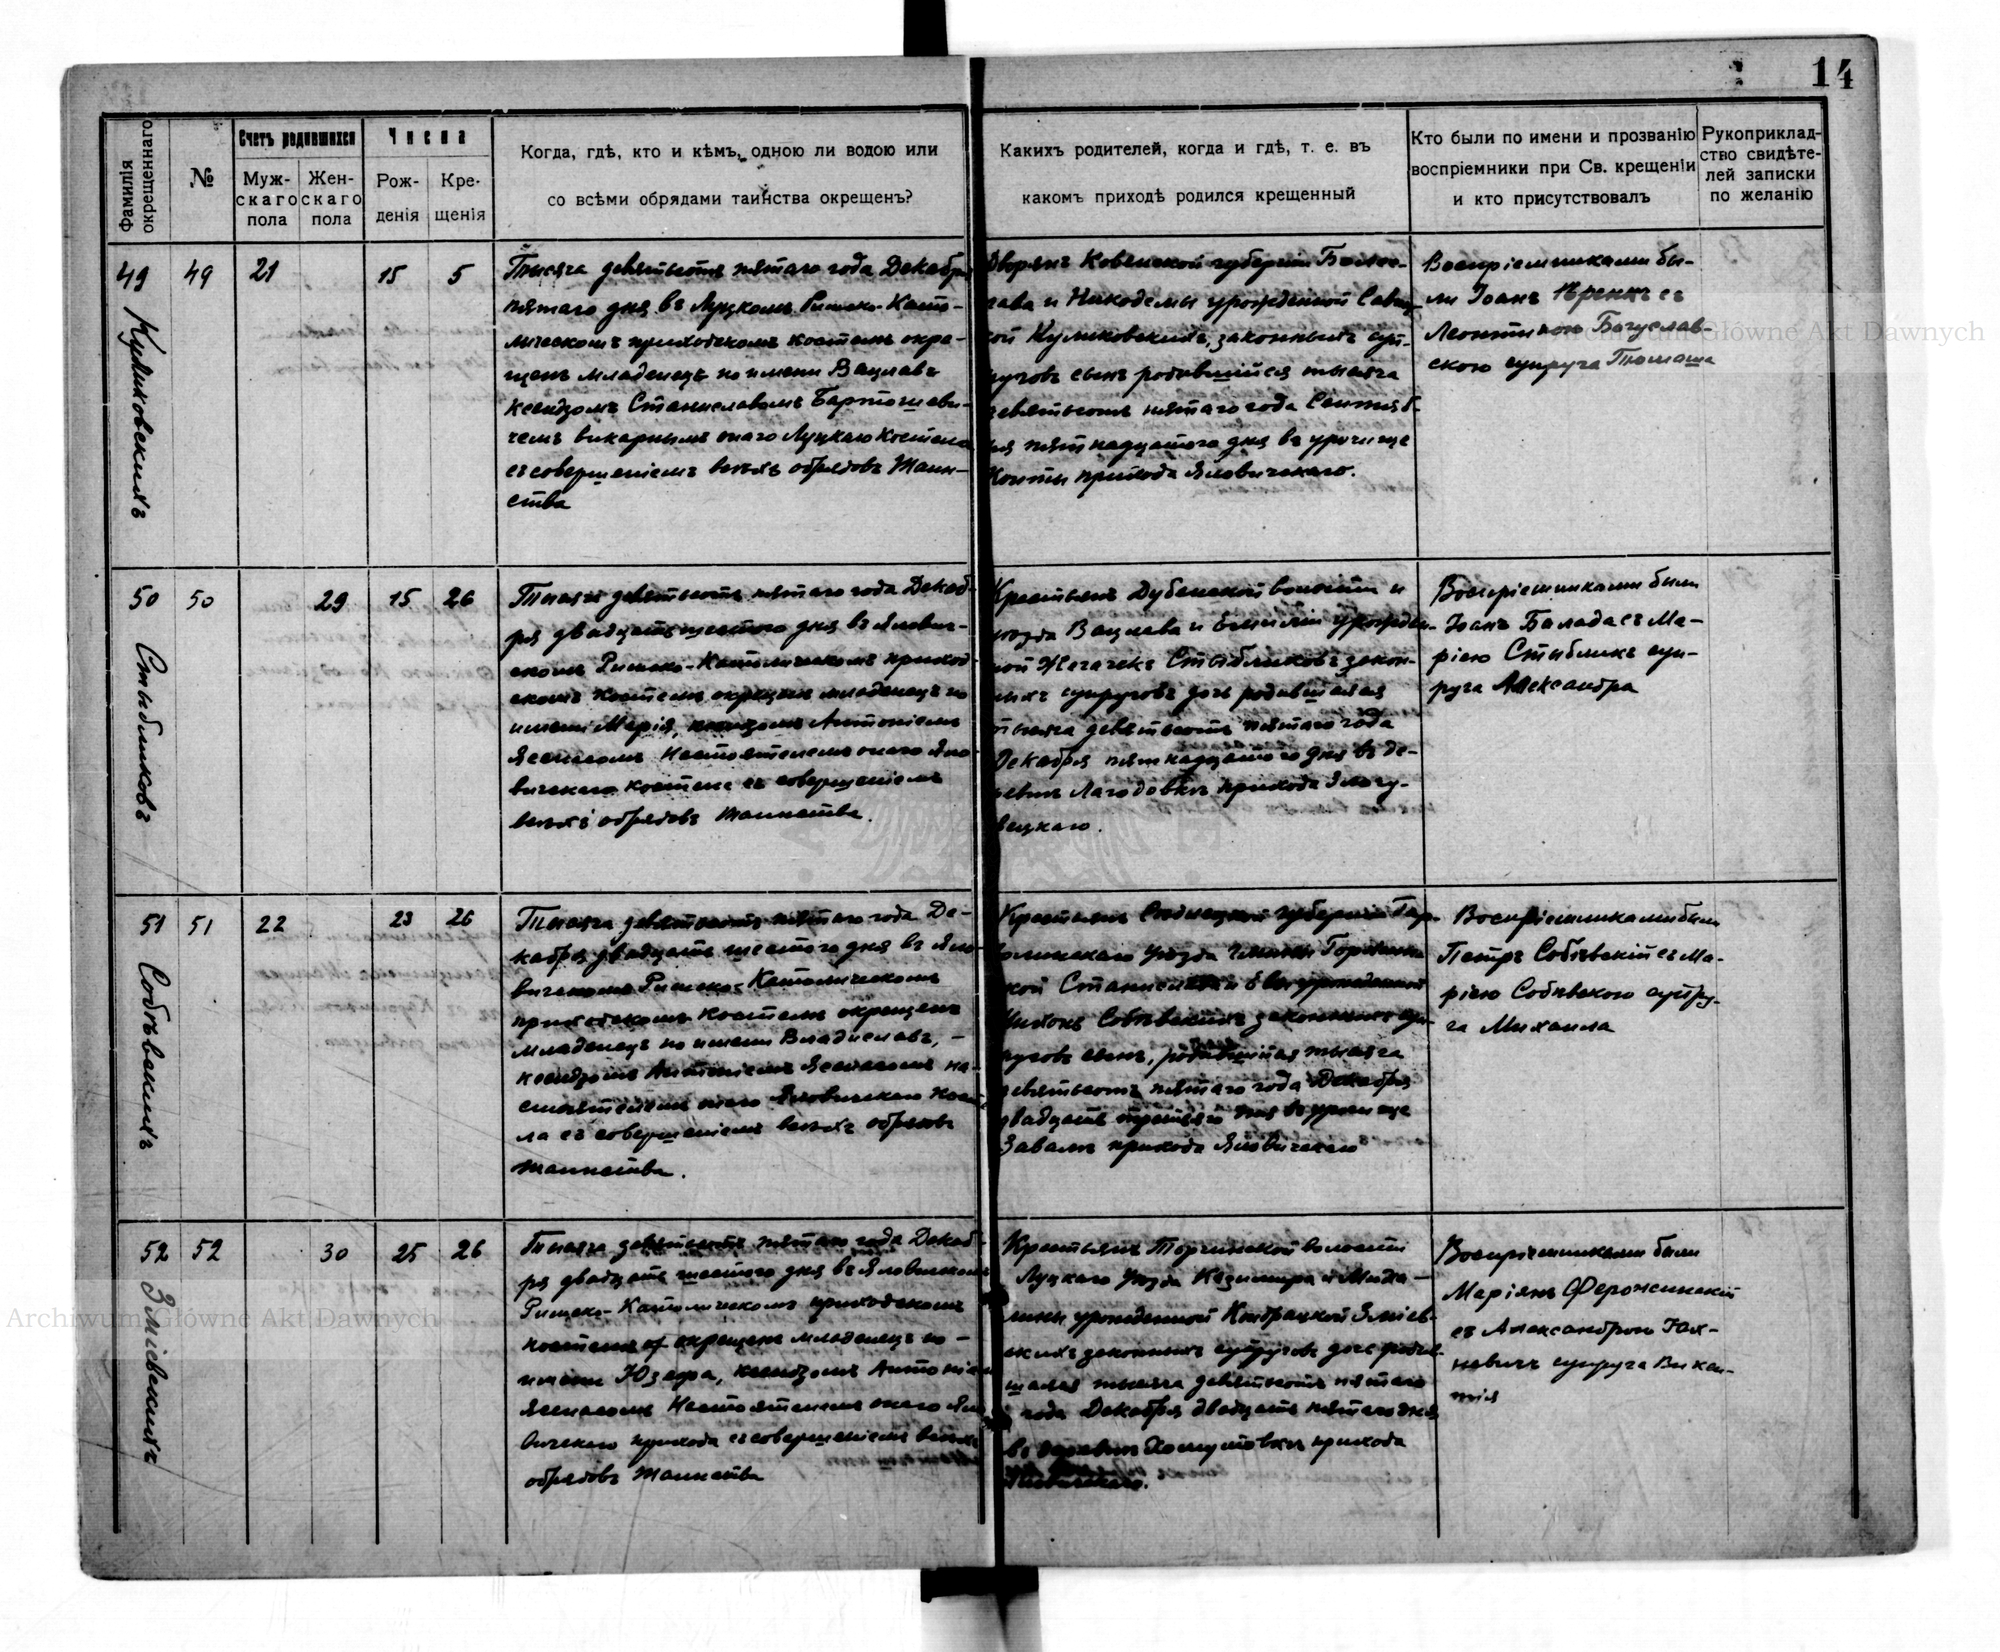 14
фамилія
окрещеннаго
№
Счетъ родившихся
Муж-
скаго
пола
Жен-
скаго
пола
Числа
Рож-
денія
Кре-
щенія
Когда, гдѣ, кто и кѣмъ, одною ли водою или
со всѣми обрядами таинства окрещенъ?
Какихъ родителей, когда и гдѣ, т. е. въ
какомъ приходѣ родился крещенный
Кто были по имени и прозванію
воспріемники при Св. крещеніи
и кто присутствовалъ
Рукоприклад-
ство свидѣте-
лей записки
по желанію
49 Куликовскихъ
49 21 15 5
Тысяча девятьсотъ пятаго года Декабря
пятаго дня въ Луцкомъ Римско-Като-
лическомъ приходскомъ костелѣ окре-
щенъ младенецъ по имени Вацлавъ
ксендзомъ Станиславомъ Бартошеви-
чемъ викарнымъ онаго Луцкаго костела
съ совершеніемъ всѣхъ обрядовъ Таин-
ства
Дворянъ Ковенской губерніи
и Никодемы урожденной
Куликовскихъ, законныхъ суп-
руговъ сынъ родившійся тысяча
девятьсотъ пятаго года Сентяб-
ря пятнадцатаго дня въ урочище
прихода Яловичскаго.
Воспріемниками бы-
ли Іоанъ съ
Леонтиною Богуслав-
скою супруга Томаша
50 Стыбликовъ
50 29 15 26
Тысяча девятьсотъ пятаго года Декаб-
ря двадцать шестого дня въ Ялович-
скомъ Римско-Католическомъ приход-
скомъ костелѣ окрещенъ младенецъ по
имени Марія, ксендзомъ Антоніемъ
Настоятелемъ онаго Яло-
вичскаго костела съ совершеніемъ
всѣхъ обрядовъ Таинства.
Крестьянъ Дубенской волости и
уѣзда Вацлава и Емиліи урожден-
ной Стыбликовъ закон-
ныхъ супруговъ дочь родившаяся
тысяча девятьсотъ пятаго года
Декабря пятнадцатаго дня въ де-
ревнѣ Лагодовкѣ прихода
Воспріемниками были
Іоанъ Балада съ Ма-
ріею Стыбликъ суп-
руга Александра
51 Собѣвскихъ
51 22 23 26
Тысяча девятьсотъ пятаго года Де-
кабря двадцать шестого дня въ Яло-
вичскомъ Римско-Католическомъ
приходскомъ костелѣ окрещенъ
младенецъ по имени Владиславъ, -
ксендзомъ Антоніемъ на-
стоятелемъ онаго Яловичскаго косте-
ла съ совершеніемъ всѣхъ обрядовъ
таинства.
Крестьянъ губерніи
уѣзда гмины
Станислава и Евы урожденной
Собѣвскихъ законныхъ суп-
руговъ сынъ, родившійся тысяча
девятьсотъ пятаго года Декабря
двадцать третьяго дня въ урочище
прихода Яловичскаго
Воспріемниками были
Петръ Собѣвскій съ Ма-
ріею Собѣвскою супру-
га Михаила
52 Зміевскихъ
52 30 25 26
Тысяча девятьсотъ пятаго года Декаб-
ря двадцать шестого дня въ Яловичскомъ
Римско-Католическомъ приходскомъ
костелѣ окрещенъ младенецъ по -
имени Юзефа, ксендзомъ Антоніемъ
Настоятелемъ онаго Яло-
вичскаго прихода съ совершеніемъ всѣхъ
обрядовъ Таинства
Крестьянъ Торчинской волости
Луцкаго уѣзда Казимира и Миха-
лины урожденной Зміев-
скихъ законныхъ супруговъ дочь родив-
шаяся тысяча девятьсотъ пятаго
года Декабря двадцать пятаго дня
въ деревнѣ прихода
Воспріемниками были
Маріянъ
съ Александрою
супруга Викен-
тія
Archiwum Główne Akt Dawnych
Archiwum Główne Akt Dawnych